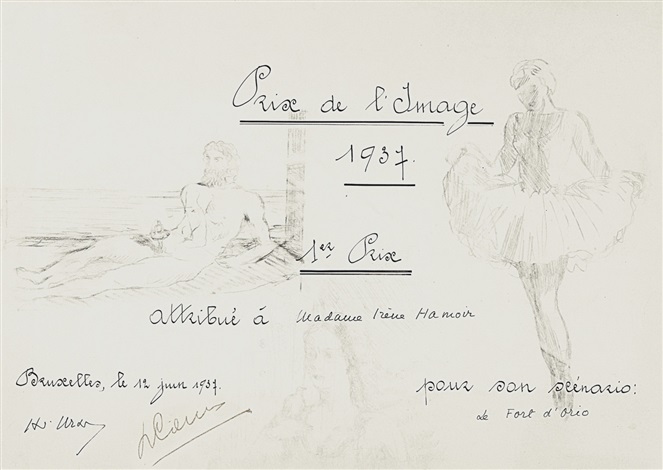 Prix de l'Image
1937.
1er Prix
attribué à Madame Irène Hamoir
Bruxelles, le 12 juin 1937.
pour son scénario:
Le Fort d'Orio